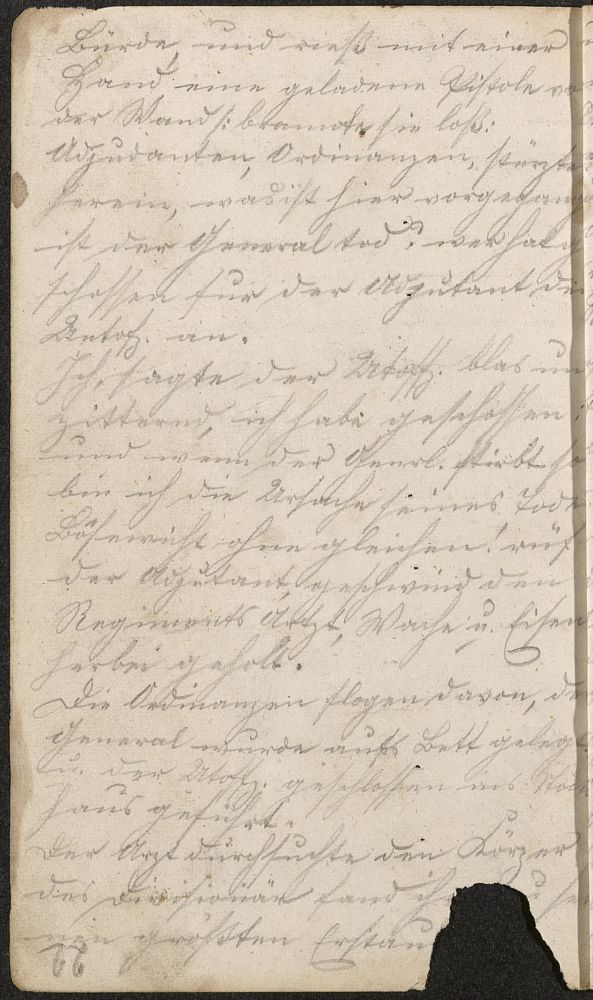 Bürde, und rieß mit einer
Hand eine geladene Pistole vo
der Wand /: brannte sie loß:
Adjudanten, Ordinanzen, stürzte
herein, was ist hier vorgegang
ist der General tod? wer hat g
schossen fur der Adjutant de
Untof. an.
Ich, sagte der Utoff. blas un
zitternd, ich habe geschossen
und wenn der Genrl. stirbt so
bin ich die Ursache seines Tode
Bösewicht ohne gleichen! rief
der Adjutant, geschwind den
Regiments Artzt, Wache u. Eisen
herbei geholt.
Die Ordinanzen flogen davon, de
General wurde aufs Bett gelegt
u. der Utoff. geschlossen ins Stock
haus geführt.
Der Arzt durchsuchte den Körper
des Divisionär fand ihn zu se
nen großten Erstau
22